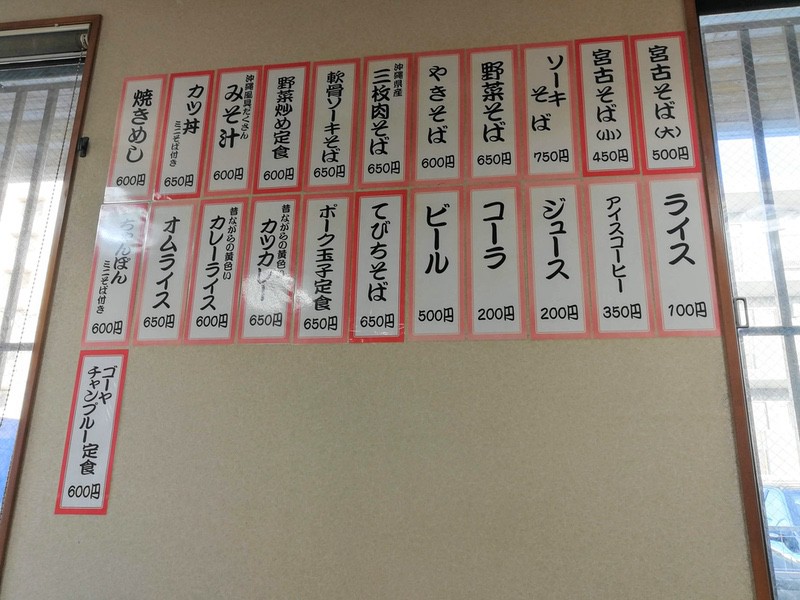 宮古そば(大)
500円
宮古そば(小)
450円
ソーキそば
750円
野菜そば
650円
やきそば
600円
沖縄県産
三枚肉そば
650円
軟骨ソーキそば
650円
野菜炒め定食
600円
沖縄風具だくさん
みそ汁
600円
カツ丼
ミニそば付き
650円
焼きめし
600円
ライス
100円
アイスコーヒー
350円
ジュース
200円
コーラ
200円
ビール
500円
てびちそば
650円
ポーク玉子定食
650円
昔ながらの黄色い
カツカレー
650円
昔ながらの黄色い
カレーライス
600円
オムライス
650円
ちゃんぽん
ミニそば付き
600円
ゴーヤ
チャンプルー定食
600円